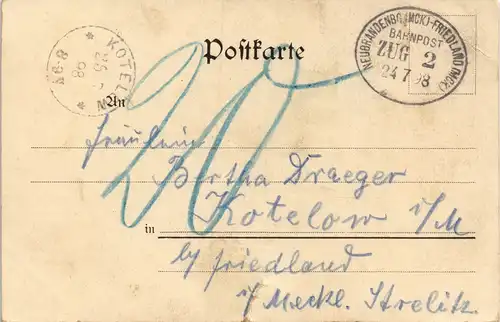 NEUBRANDENBG.(MCK)-FRIEDLAND(MCK)
BAHNPOST
ZUG 2
24 7 98
KOTEL
25
98
N6-8
Postkarte
20
An
Fräulein
Bertha Draeger
in Kotelow i/M
by Friedland
i/ Meckl. Strelitz.